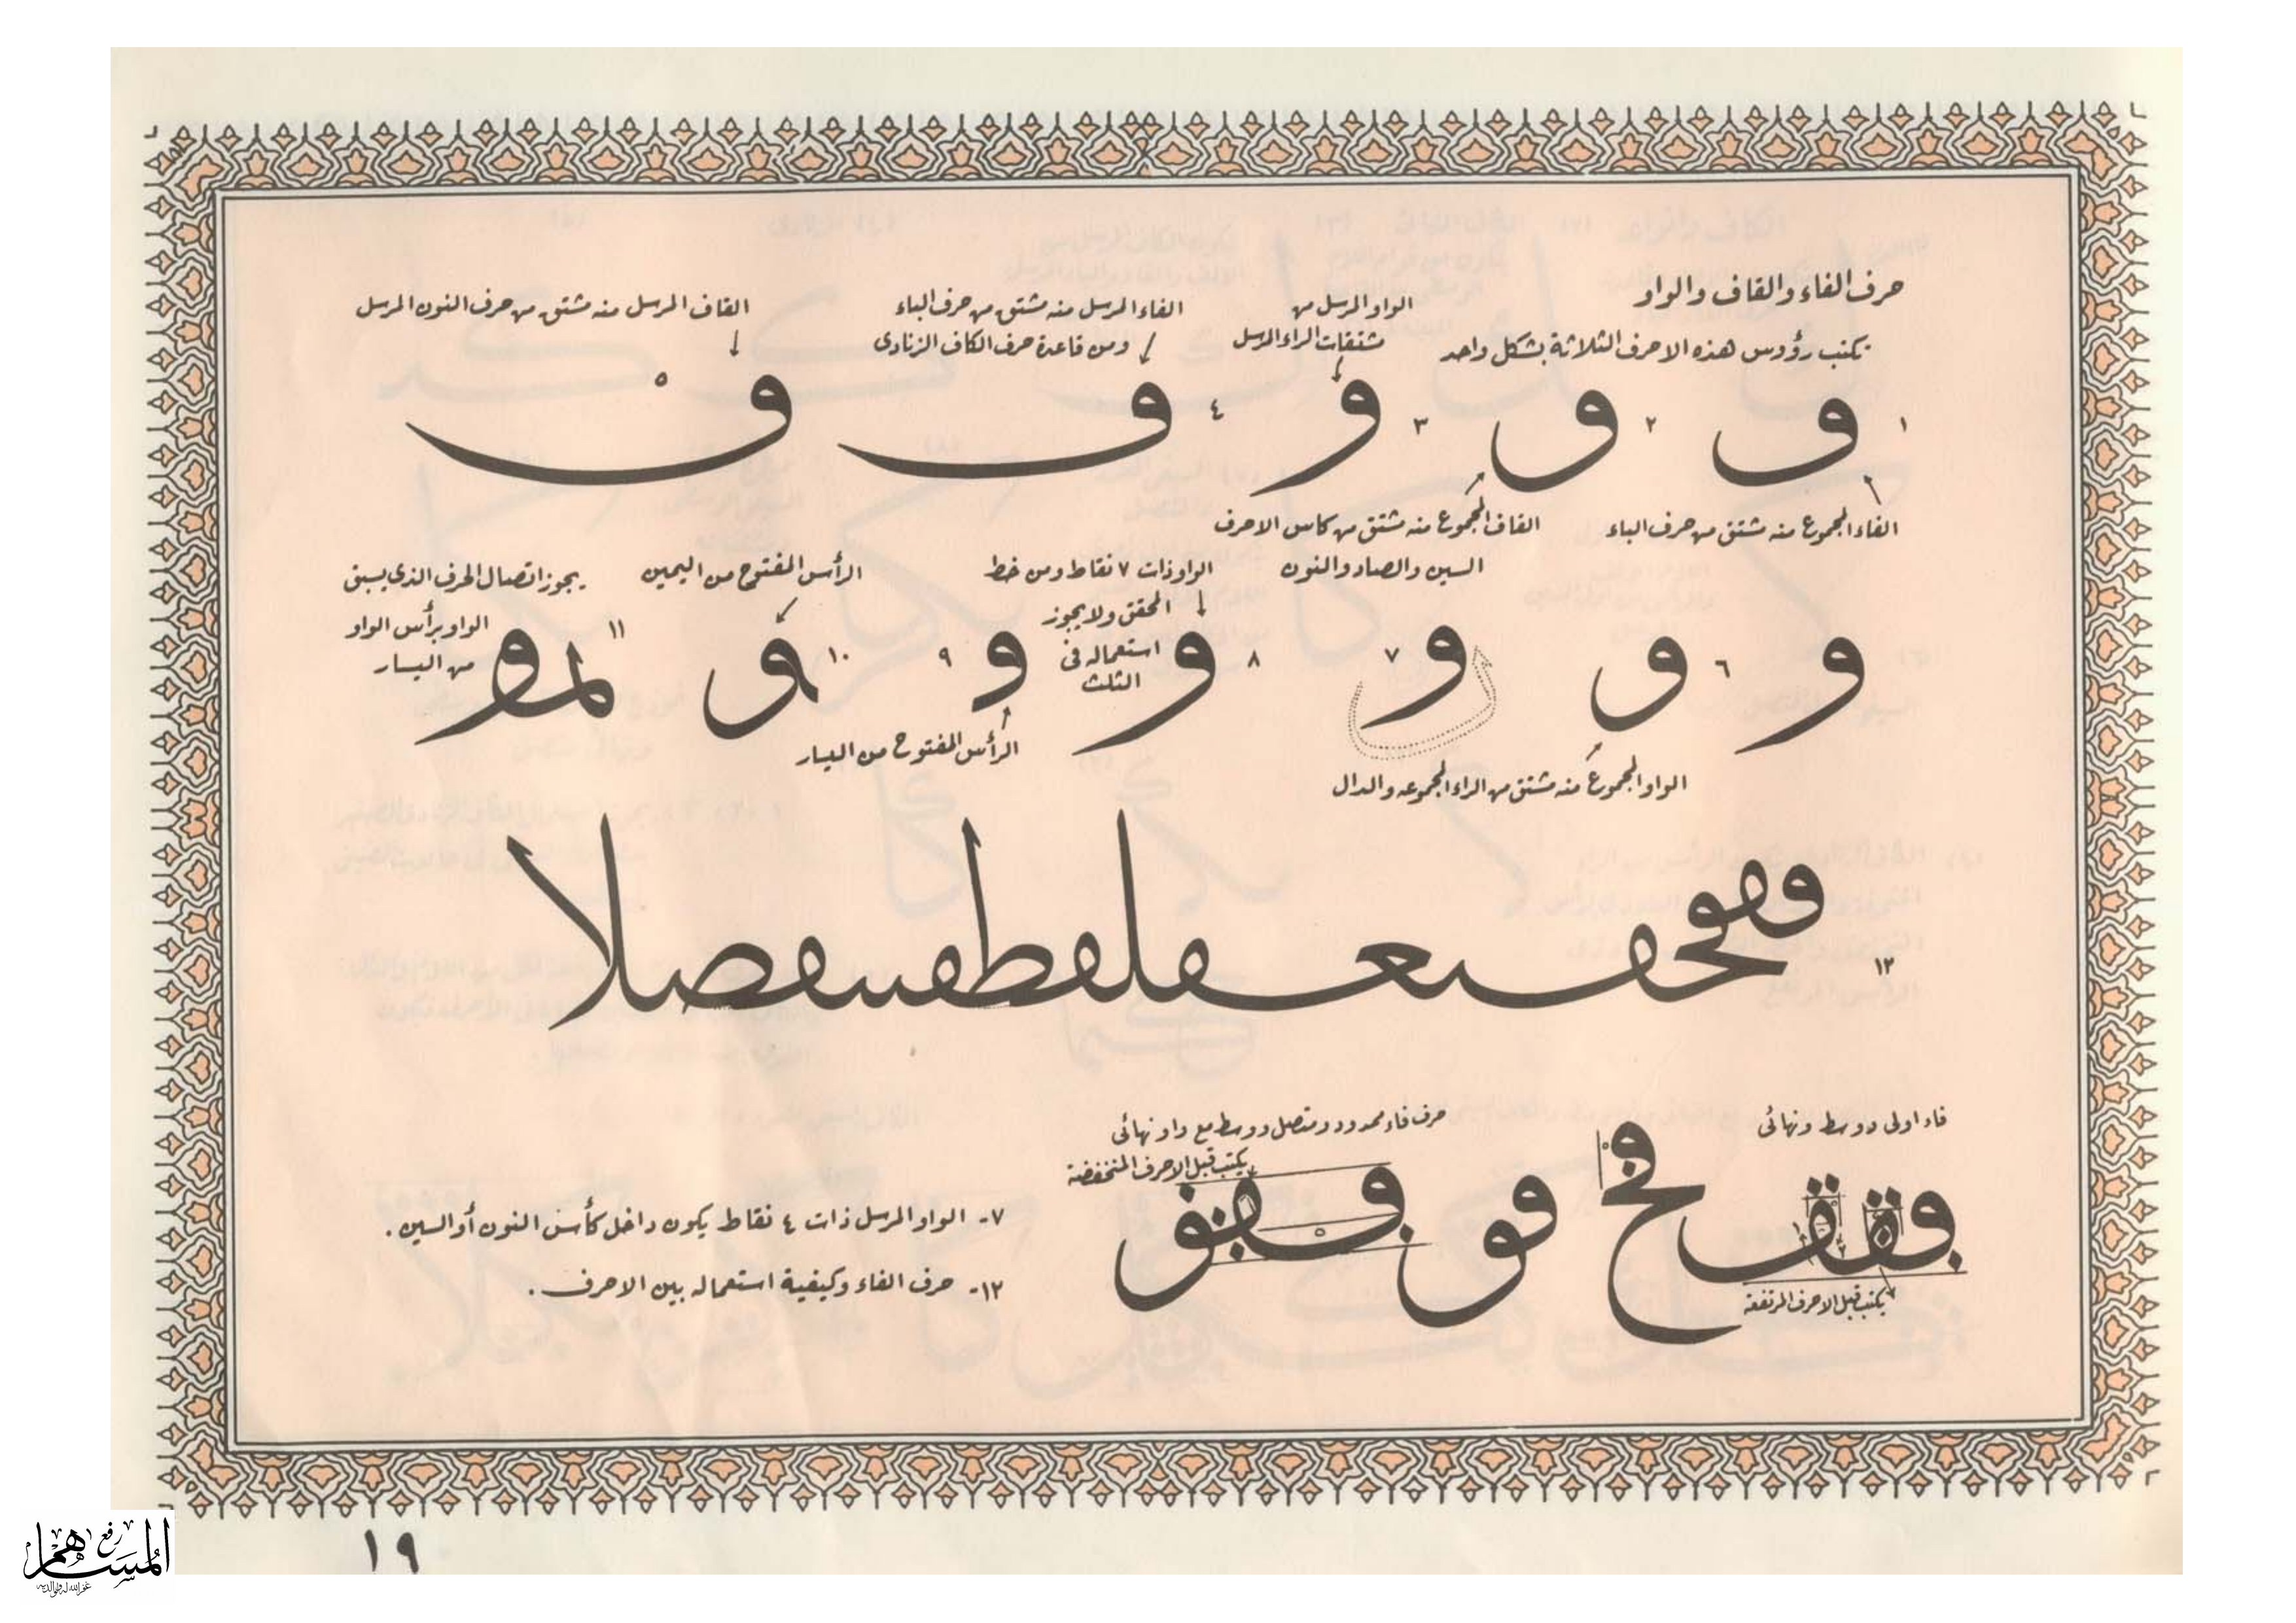 حرف الفاء والقاف والواو
تكتب رؤوس هذه الاحرف الثلاثة بشكل واحد
الواو المرسل من
مشتقات الراء المرسل
الفاء المرسل منه مشتق من حرف الباء
ومن قاعدة حرف الكاف الزنادى
القاف المرسل منه مشتق من حرف النون المرسل
١ ف ٢ ق ٣ و ٤ ف ٥ ق
الفاء المجموع منه مشتق من حرف الباء
القاف المجموع منه مشتق من كاس الاحرف
السين والصاد والنون
الواو ذات ٧ نقاط ومن خط
المحقق ولا يجوز
استعماله فى
الثلث
الرأس المفتوح من اليمين
يجوز اتصال الحرف الذى يسبق
الواو برأس الواو
من اليسار
و ٦ و ٧ و ٨ و ٩ و ١٠ ١١
الواو المجموع منه مشتق من الراء المجموعه والدال
الرأس المفتوح من اليسار
١٢
فاء اولى ووسط ونهائى
حرف فاء ممدود ومتصل ووسط مع واو نهائى
يكتب قبل الاحرف المنخفضة
يكتب قبل الاحرف المرتفعة
٧- الواو المرسل ذات ٤ نقاط يكون داخل كأس النون أو السين .
١٢- حرف الفاء وكيفية استعماله بين الاحرف .
١٩
المساهم